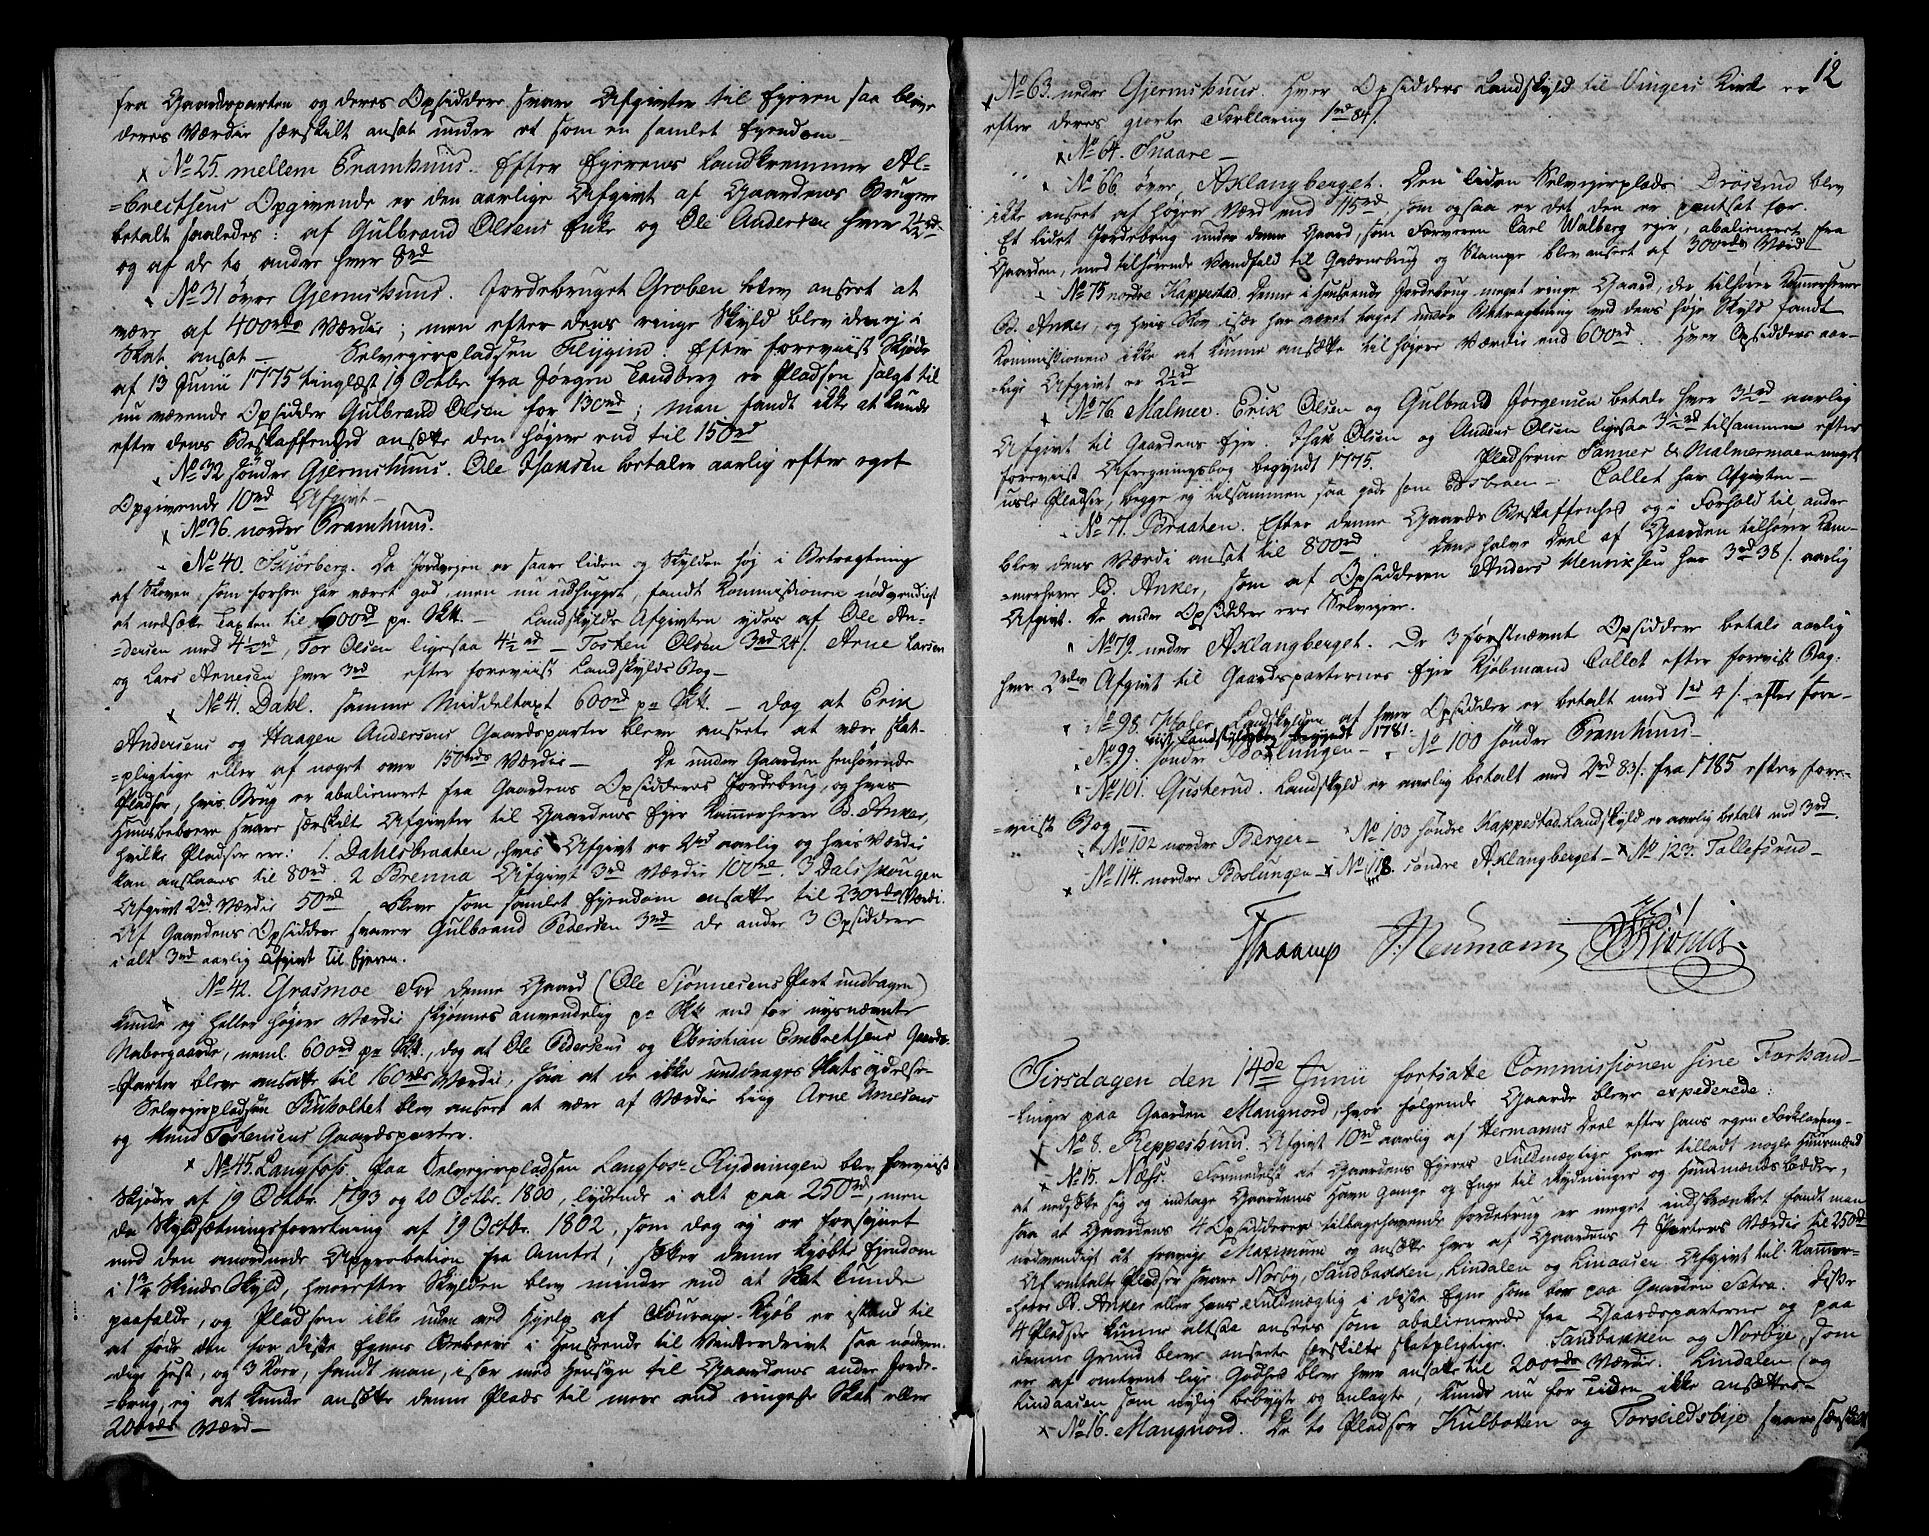 fra Gaardsparten og deres Opsiddere svare Afgivter til Ejeren saa bleve
deres Værdie særskilt ansat under et som en samlet Ejendom —
x No 25. mellem Bramhuus. Efter Ejerens Landkræmmer Al=
=brechtsens Opgivende er den aarlige Afgivt af Gaardens Brugere
betalt saaledes: af Gulbrand Olsens Enke og Ole Andersen hver 2½rd.
og af de to andre hver 8rd
No 31 øvre Gjermshuus. Jordebruget Groben blev anseet at
være af 400rds Værdie; men efter dens ringe Skyld blev den ej i
Skat ansat — Selveierpladsen Flygind. Efter foreviist Skjøde
af 13 Junii 1775 tinglæst 19 Octbr. fra Jørgen Tandberg er Pladsen solgt til
nu værende Opsidder Gulbrand Olsen for 130rd; man fandt ikke at kunde
efter dens Beskaffenhed ansætte den høyere end til 150rd
x No 32 søndre Gjermshuus. Ole Isaksen betaler aarlig efter eget
Opgivende 10rd Afgivt —
x No 36 nordre Bramhuus.
No 40. Skjørberg. Da Jordvejen er saare liden og Skylden høy i Betragtning
af Skoven som forhen har været god, men nu udhugget, fandt Kommissionen nødvendigt
at nedsætte Taxten til 600rd pr. Skk. — Landskylds Afgivten ydes af Ole An=
=dersen med 4½rd, Tor Olsen ligesaa 4½rd — Tosten Olsen 3rd 24/. Arne Larsen
og Lars Arnesen hver 3rd efter foreviist Landskylds Bog —
x No 41. Dahl. samme Middeltaxt 600rd pr Skk. — dog at Erik
Andersens og Haagen Andersens Gaardsparter bleve ansette at være skat=
=pligtige eller af noget over 150rds Værdie — De under Gaarden henhørende
Pladser, hvis Brug er abalieneret fra Gaardens Opsidderes Jordebrug, og hvis
Huusbeboere svare særskilte Afgivter til Gaardens Ejer Kammerherre B. Anker,
hvilke Pladser ere: 1. Dahlsbraaten, hvis Afgivt er 2rd aarlig og hvis Værdie
kan anslaaes til 80rd. 2 Brenna Afgivt 3rd Værdie 100rd. 3 Dalsskougen
Afgivt 2rd Værdie 50rd, bleve som samlet Ejendom ansatte til 230rds Værdi.
Af Gaardens Opsiddere svarer Gulbrand Pedersen 3rd de andre 3 Opsiddere
i alt 3rd aarlig Afgivt til Ejeren.
x No 42. Grasmoe For denne Gaard (Ole Tjønnesens Part undtagen)
kunde ej heller høyere Værdie skjønnes anvendelig pr Skk end for nysnævnte
Nabogaarde, neml. 600rd pr Skk., dog at Ole Pedersens og Christian Embretsens Gaards=
=Parter bleve ansatte til 160rds Værdie, saa at de ikke unddrages Skats ydelse —
Selveierpladsen Buholtet blev anseet at være af Værdie liig Arne Arnesens
og Amund Tostensens Gaardsparter.
x No 45. Langfoss. Paa Selveierpladsen Langfoss-Rydningen blev foreviist
Skjøder af 19 Octbr. 1793 og 20 Octbr. 1800, lydende i alt paa 250rd, men
da Skyldsætningsforretning af 19 Octbr. 1802, som dog ej er forsynet
med den anordnede Approbation fra Amtet, sætter denne kjøbte Ejendom
i 1½ Skinds Skyld, hvorefter Skylden blev mindre end at Skat kunde
paafalde, og Pladsen ikke uden ved Hjelp af Fourage-Kjøb er istand til
at føde den for disse Egnes Beboere i Henseende til Vinterdrivt saa nødven-
dige Hest, og 3 Koer, fandt man, især med Hensyn til Gaardens andre Jorde=
=brug, ej at kunde ansætte denne Plads til mere end ringeste Skat eller
200rds Værd —
12
x No 63. nedre Gjermshuus. Hver Opsidders Landskyld til Vingers Kirke er
efter deres gjorte Forklaring 1rd 84/.
x No 64. Snaare —
No 66 øvre Aklangberget. Den liden Selveierplads Drøserud blev
ikke anseet af høyere Værd end 115rd, som ogsaa er det den er pantsat for.
Et lidet Jordebrug under denne Gaard, som Farveren Carl Walberg ejer, abalieneret fra
Gaarden, med tilhørende Vandfald til Qværnebrug og Stampe blev anseet af 300rds Værd
No 75 nordre Kappestad. Denne i Henseende Jordebrug meget ringe Gaard, der tilhører Kammerherre
B. Anker, og hvis Skov især har været taget under Betragtning ved dens høye Skyld fandt
Kommissionen ikke at kunne ansætte til høyere Værdie end 600rd. Hver Opsidders aar=
=lige Afgivt er 2½rd
No 76 Malmer. Erik Olsen og Gulbrand Jørgensen betale hver 3½rd aarlig
Afgivt til Gaardens Ejer. Isak Olsen og Anders Olsen ligesaa 3½rd tilsammen efter
foreviist Afregningsbog begyndt 1775. Pladserne Sanner & Malmermoen meget
usle Pladser, begge ej tilsammen saa gode som Edsbroen — Collet har Afgivten —
No 77. Braaten. Efter denne Gaards Beskaffenhed og i Forhold til andre
blev dens Værdi ansat til 800rd. Den halve Deel af Gaarden tilhører Kam=
=merherre B. Anker, som af Opsidderen Anders Henriksen har 3rd 38/. aarlig
Afgivt. De andre Opsiddere ere Selveiere.
No 79. nedre Aklangberget. De 3 førstnævnte Opsiddere betale aarlig
hver 2rdlr Afgivt til Gaardsparternes Ejer Kjøbmand Collet efter foreviist Bog.
No 98. Haler. Landskylden af hver Opsidder er betalt med 1rd 4/. efter fore-
viist Landskyldbog begyndt 1781.
No 99. søndre Boslungen — No 100 søndre Bramhuus —
No 101. Gusterud. Landskyld er aarlig betalt med 2rd 83/. fra 1785 efter fore-
=viist Bog —
No 102 nordre Berger — No 103 søndre Kappestad. Landskyld er aarlig betalt med 3rd.
x No 114. nordre Boslungen — x No 118. søndre Aklangberget — x No 123. Tallefsrud —
Thaarup J. Neumann
Tirsdagen den 14de Junii fortsatte Commissionen sine Forhand-
linger paa Gaarden Mangnord, hvor følgende Gaarde bleve expederede:
x No 8. Reppeshuus. Afgivt 10rd aarlig af Hermanns Deel efter hans egen Forklaring —
x No 15. Næss. Formedelst at Gaardens Ejeres Fuldmægtige have tilladt nogle Huusmænd
at nedsætte sig og indtage Gaardens Havne Gange og Enge til Rydninger og Huusmænds Pladser,
saa at Gaardens 4 Opsidderes tilbagehavende Jordebrug er meget indskrænket fandt man
nødvendigt at fravige Maximum og ansætte hver af Gaardens 4 Parters Værdie til 250rd
Af omtalte Pladser svare Norby, Sandbakken, Lindalen og Linaasen Afgivt til Kammer=
=herre B. Anker eller hans Fuldmægtig i disse Egne som bor paa Gaarden Sætra. Disse
4 Pladse kunne altsaa ansees som abalienerede fra Gaardsparterne og paa
denne Grund bleve ansette særskilte skatpligtige. Sandbakken og Norbye, som
er af omtrent lige Godhed blev hver ansatte til 200rds Værdie. Lindalen (og
Lindaasen som nylig bebygte og anlagte, kunde nu for Tiden ikke ansættes —
x No 16. Mangnord. De to Pladser Kulbotten og Torskildsbye svare særskilt